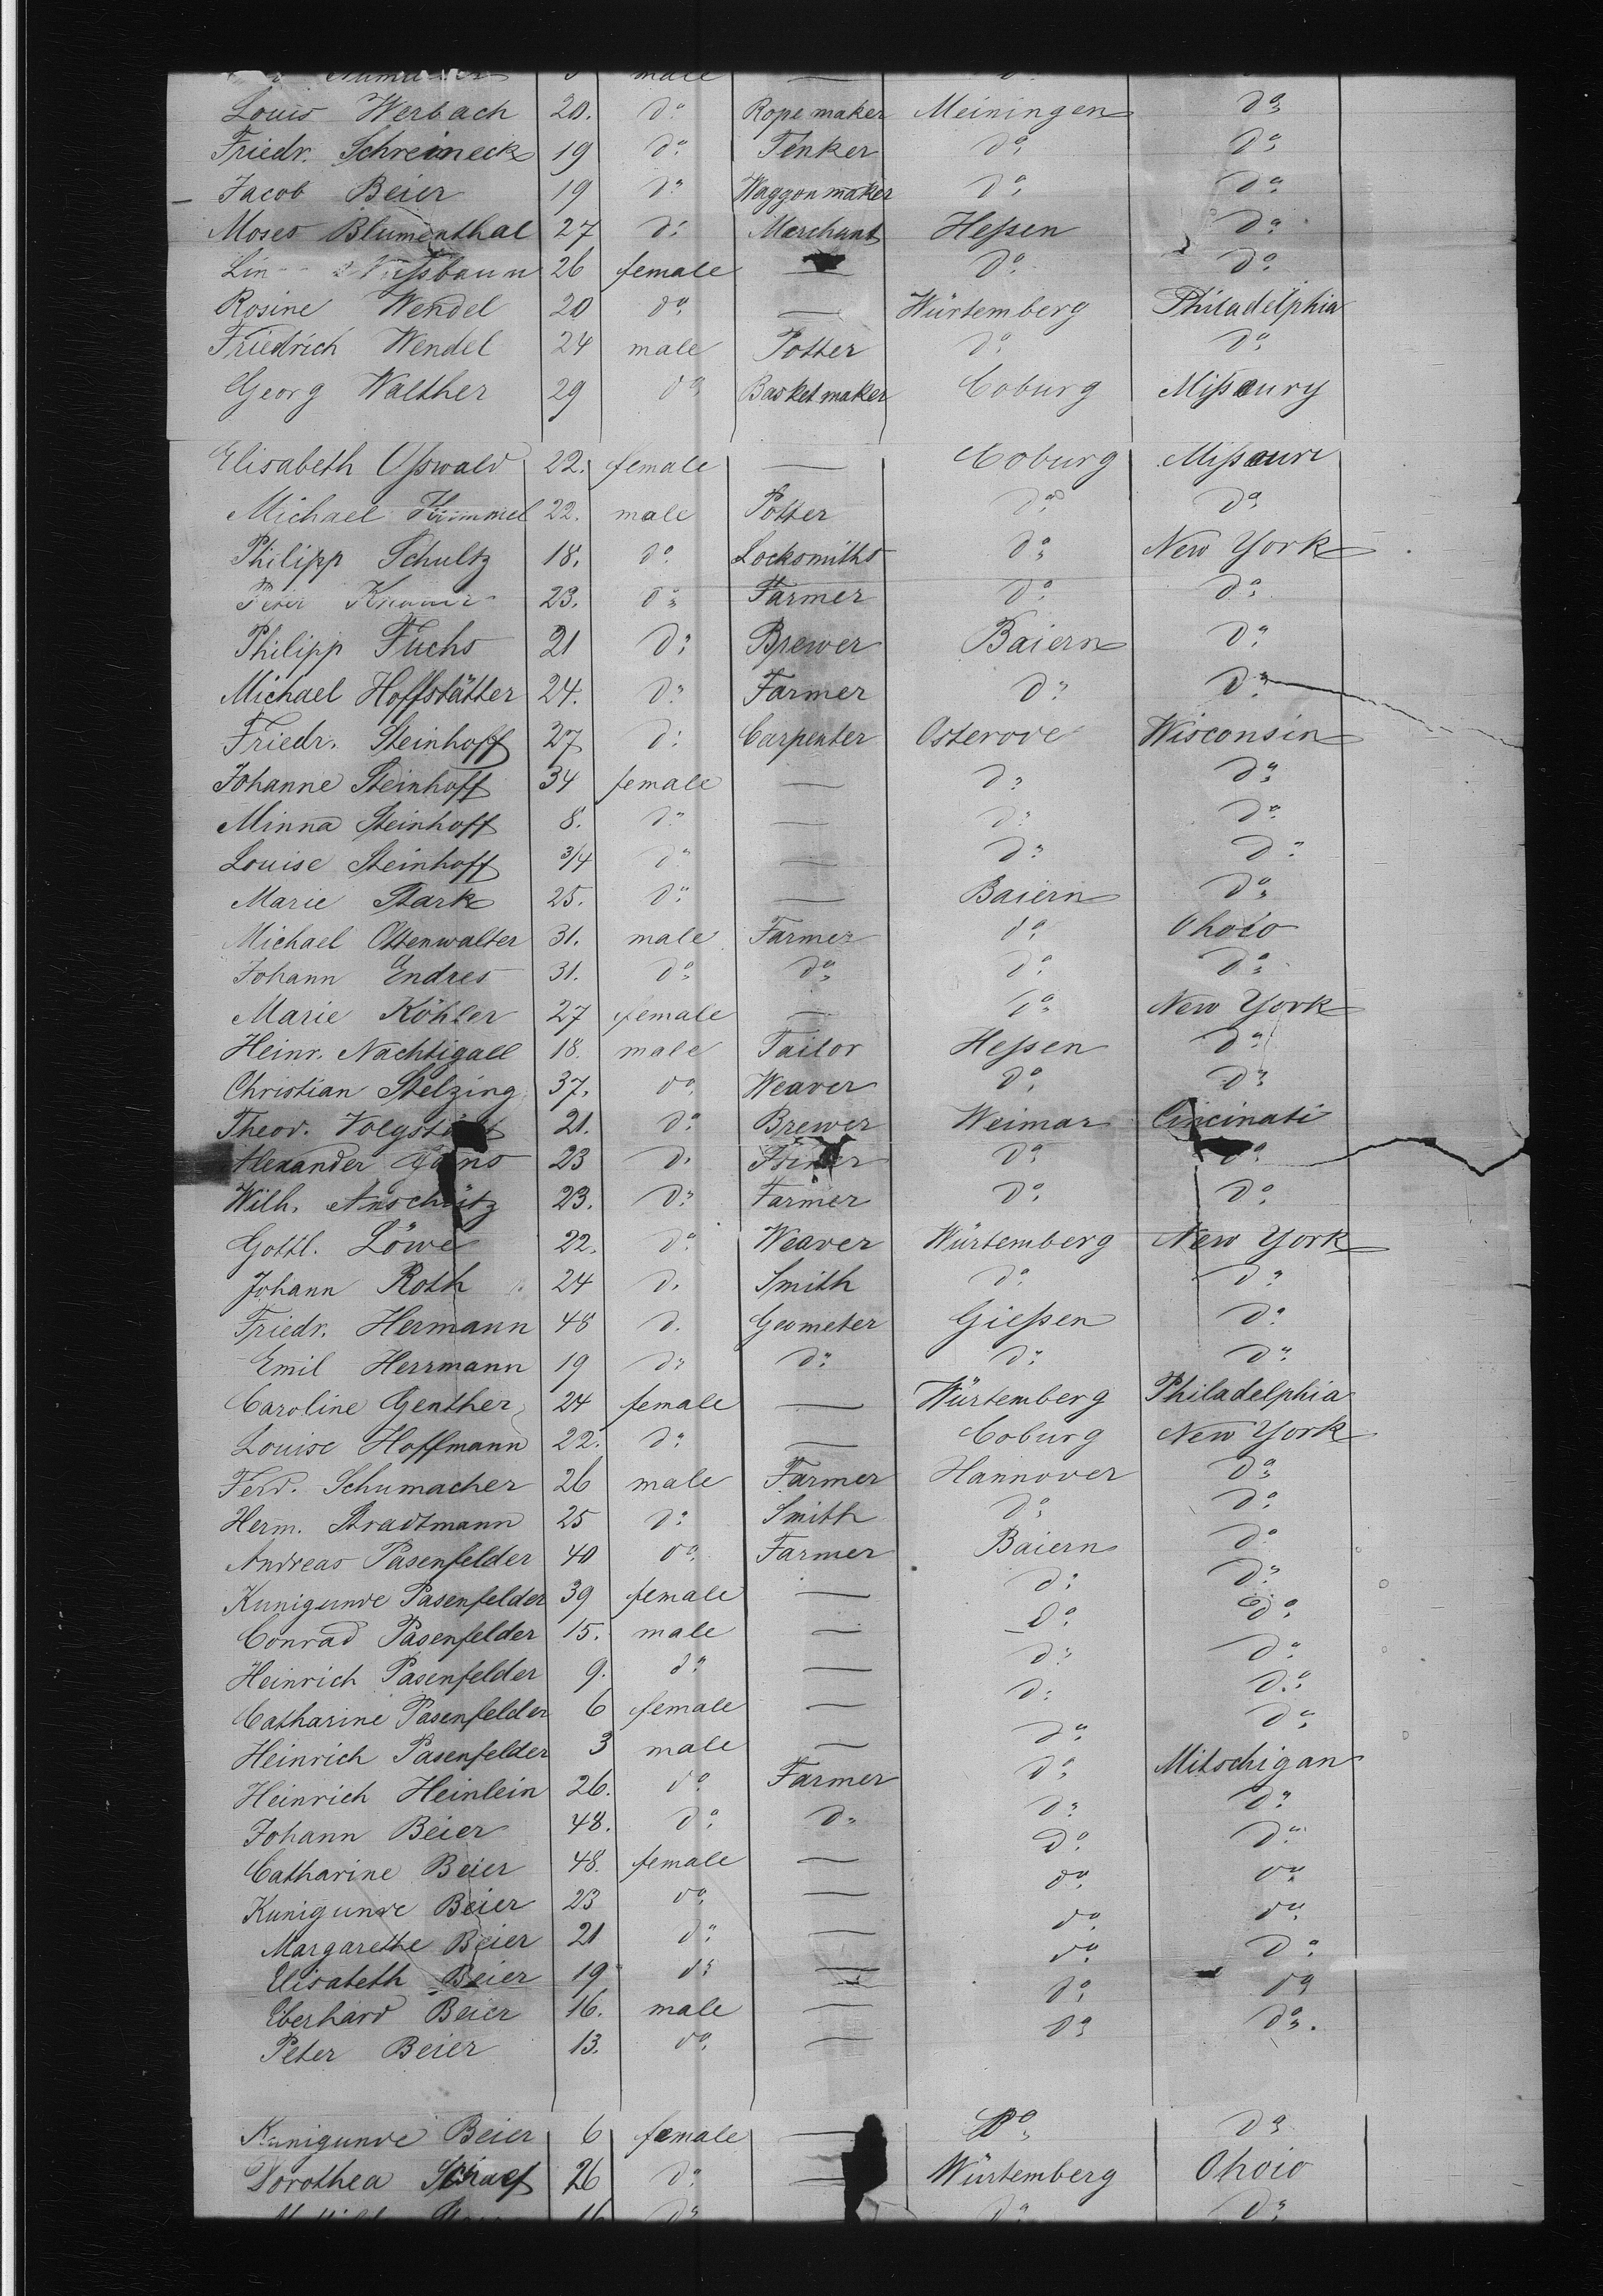 male
Louis Werbach 20. do Rope maker Meiningen do
Friedr. Schreineck 19 do Tenker do do
Jacob Beier 19 do Waggon maker do do
Moses Blumenthal 27 do Merchant Heßen do
26 female — do do
Rosine Wendel 20 do — Würtemberg Philadelphia
Friedrich Wendel 24 male Potter do do
Georg Walther 29 do Basket maker Coburg Mißoury
Elisabeth Oßwald 22. female — Coburg Mißouri
Michael Hümmel 22. male Potter do do
Philipp Schultz 18. do Locksmiths do New York
23. do Farmer do do
Philipp Fuchs 21 do Brewer Baiern do
Michael Hoffstätter 24. do Farmer do do
Friedr. Steinhoff 27 do Carpenter Osterode Wisconsin
Johanne Steinhoff 34 female — do do
Minna Steinhoff 8. do — do do
Louise Steinhoff 3/4 do — do do
Marie Stark 25. do — Baiern do
Michael Ottenwalter 31. male Farmer do Ohoio
Johann Endres 31. do do do do
Marie Köhler 27 female — do New York
Heinr. Nachtigall 18. male Tailor Heßen do
Christian Stelzing 37. do Weaver do do
Theod. 21. do Brewer Weimar Cincinati
Alexander 23 do do do
Wilh. Anschütz 23. do Farmer do do
Gottl. Löwe 22. do Weaver Würtemberg New York
Johann Roth 24 do Smith do do
Friedr. Hermann 48 do Geometer Gießen do
Emil Herrmann 19 do do do do
Caroline Genther 24 female — Würtemberg Philadelphia
Louise Hoffmann 22. do — Coburg New York
Ferd. Schumacher 26 male Farmer Hannover do
Herm. Stradtmann 25 do Smith do do
Andreas Pasenfelder 40 do Farmer Baiern do
Kunigunde Pasenfelder 39 female — do do
Conrad Pasenfelder 15. male — do do
Heinrich Pasenfelder 9. do — do do
Catharine Pasenfelder 6 female — do do
Heinrich Pasenfelder 3 male — do do
Heinrich Heinlein 26. do Farmer do Mitschigan
Johann Beier 48. do do do do
Catharine Beier 48. female — do do
Kunigunde Beier 23 do — do do
Margarethe Beier 21 do — do do
Elisabeth Beier 19 do — do do
Eberhard Beier 16. male — do do
Peter Beier 13. do — do do.
Kunigunde Beier 6 female — do do
Dorothea 26 do — Würtemberg Ohoio
16 do do do